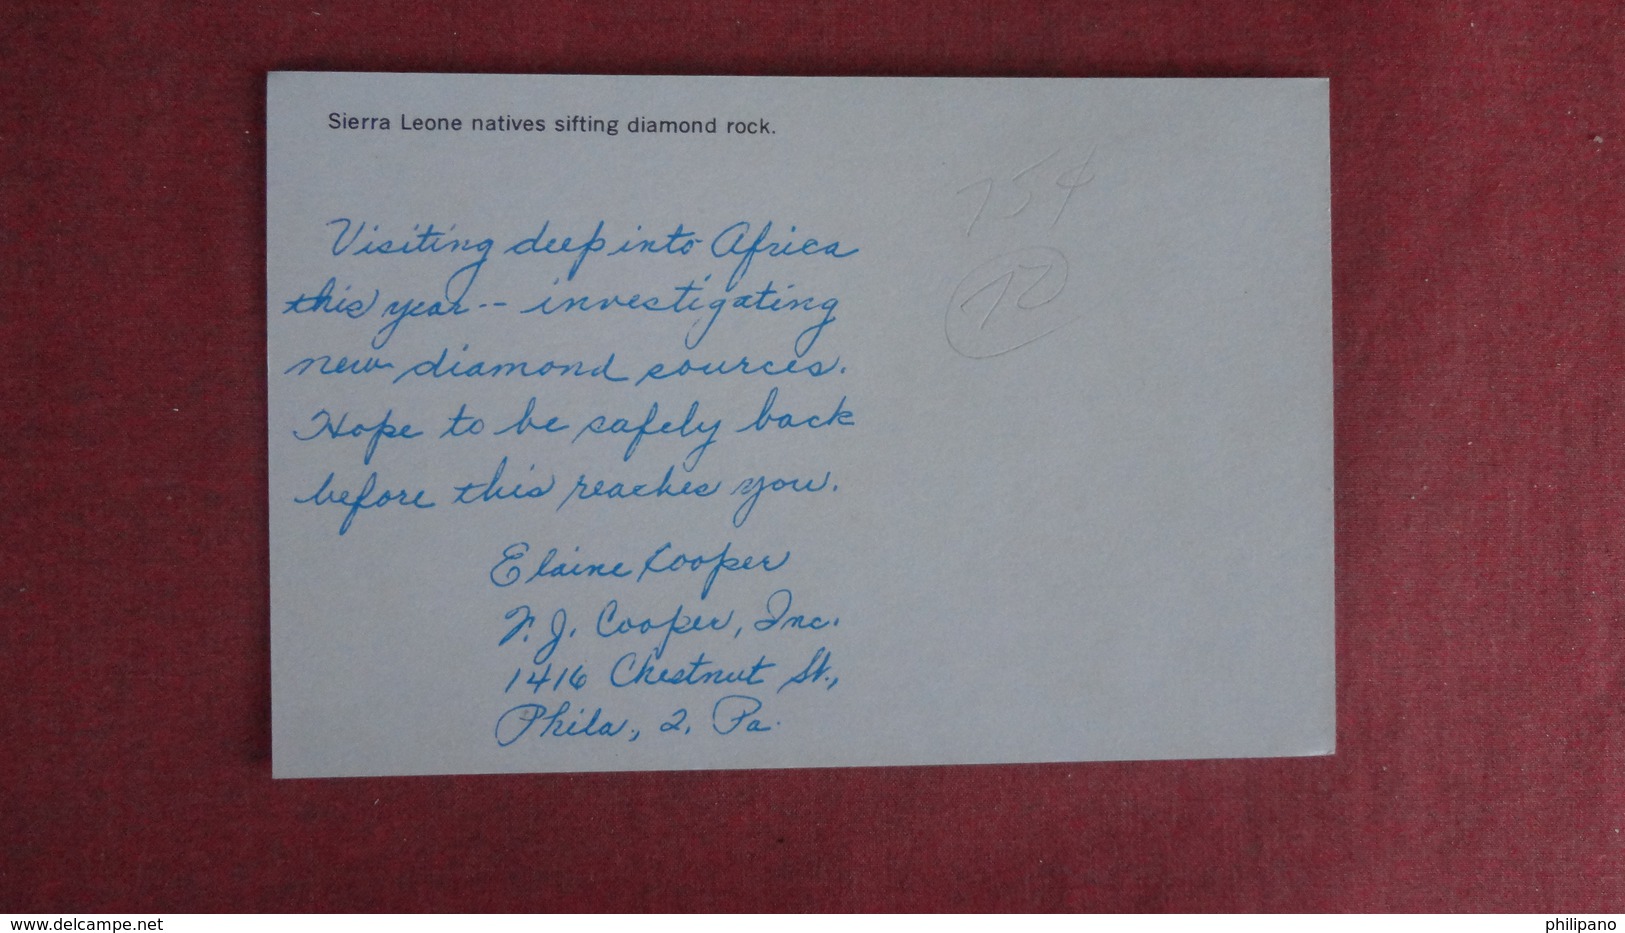 Sierra Leone natives sifting diamond rock.
75¢
72
Visiting deep into Africa
this year -- investigating
new diamond sources.
Hope to be safely back
before this reaches you.
Elaine Cooper
F. J. Cooper, Inc.
1416 Chestnut St.,
Phila., 2, Pa.
www.delcampe.net
philipano